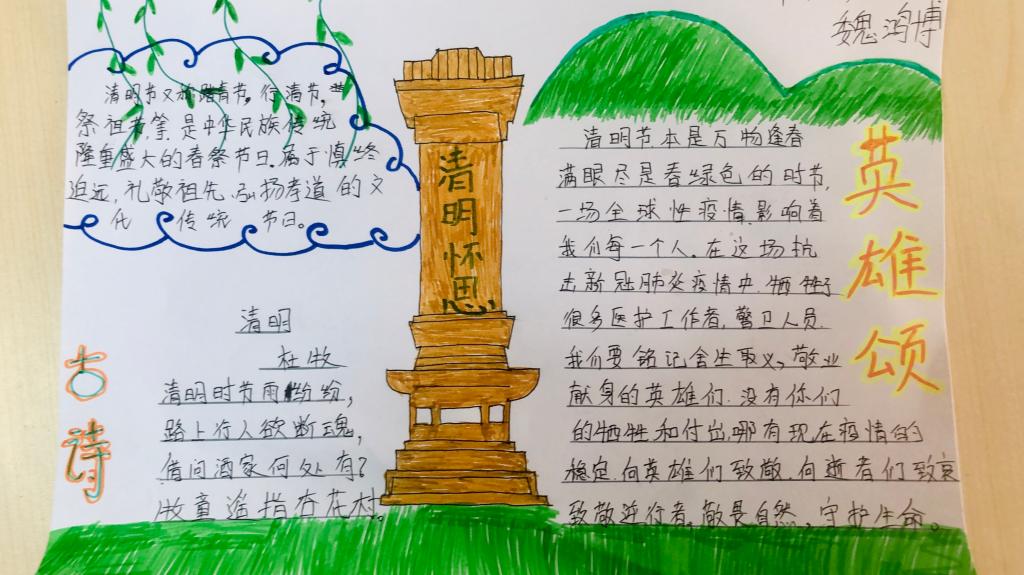 魏鸿博
清明节又称踏青节。行清节,
祭祖节等,是中华民族传统
隆重盛大的春祭节日。属于慎终
追远,礼敬祖先,弘扬孝道的文
化传统节日。
清明怀思
清明
杜牧
清明时节雨纷纷,
路上行人欲断魂,
借问酒家何处有?
牧童遥指杏花村。
古诗
清明节本是万物逢春
满眼尽是春绿色的时节,
一场全球性疫情,影响着
我们每一个人。在这场抗
击新冠肺炎疫情中,牺牲了
很多医护工作者,警卫人员.
我们要铭记舍生取义,敬业
献身的英雄们.没有你们
的牺牲和付出,哪有现在疫情的
稳定.向英雄们致敬.向逝者们致哀
致敬逆行者,敬畏自然,守护生命。
英雄颂